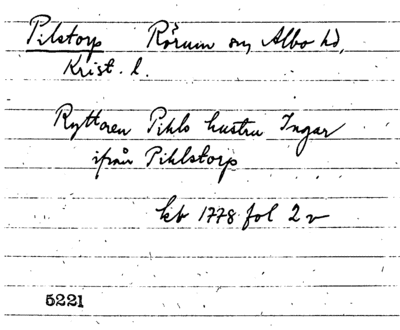 Pilstorp Rörum sn, Albo hd,
Krist. l.
Ryttaren Pihls hustru Ingar
ifrån Pihlstorp
kb 1778 fol 2 v
5221